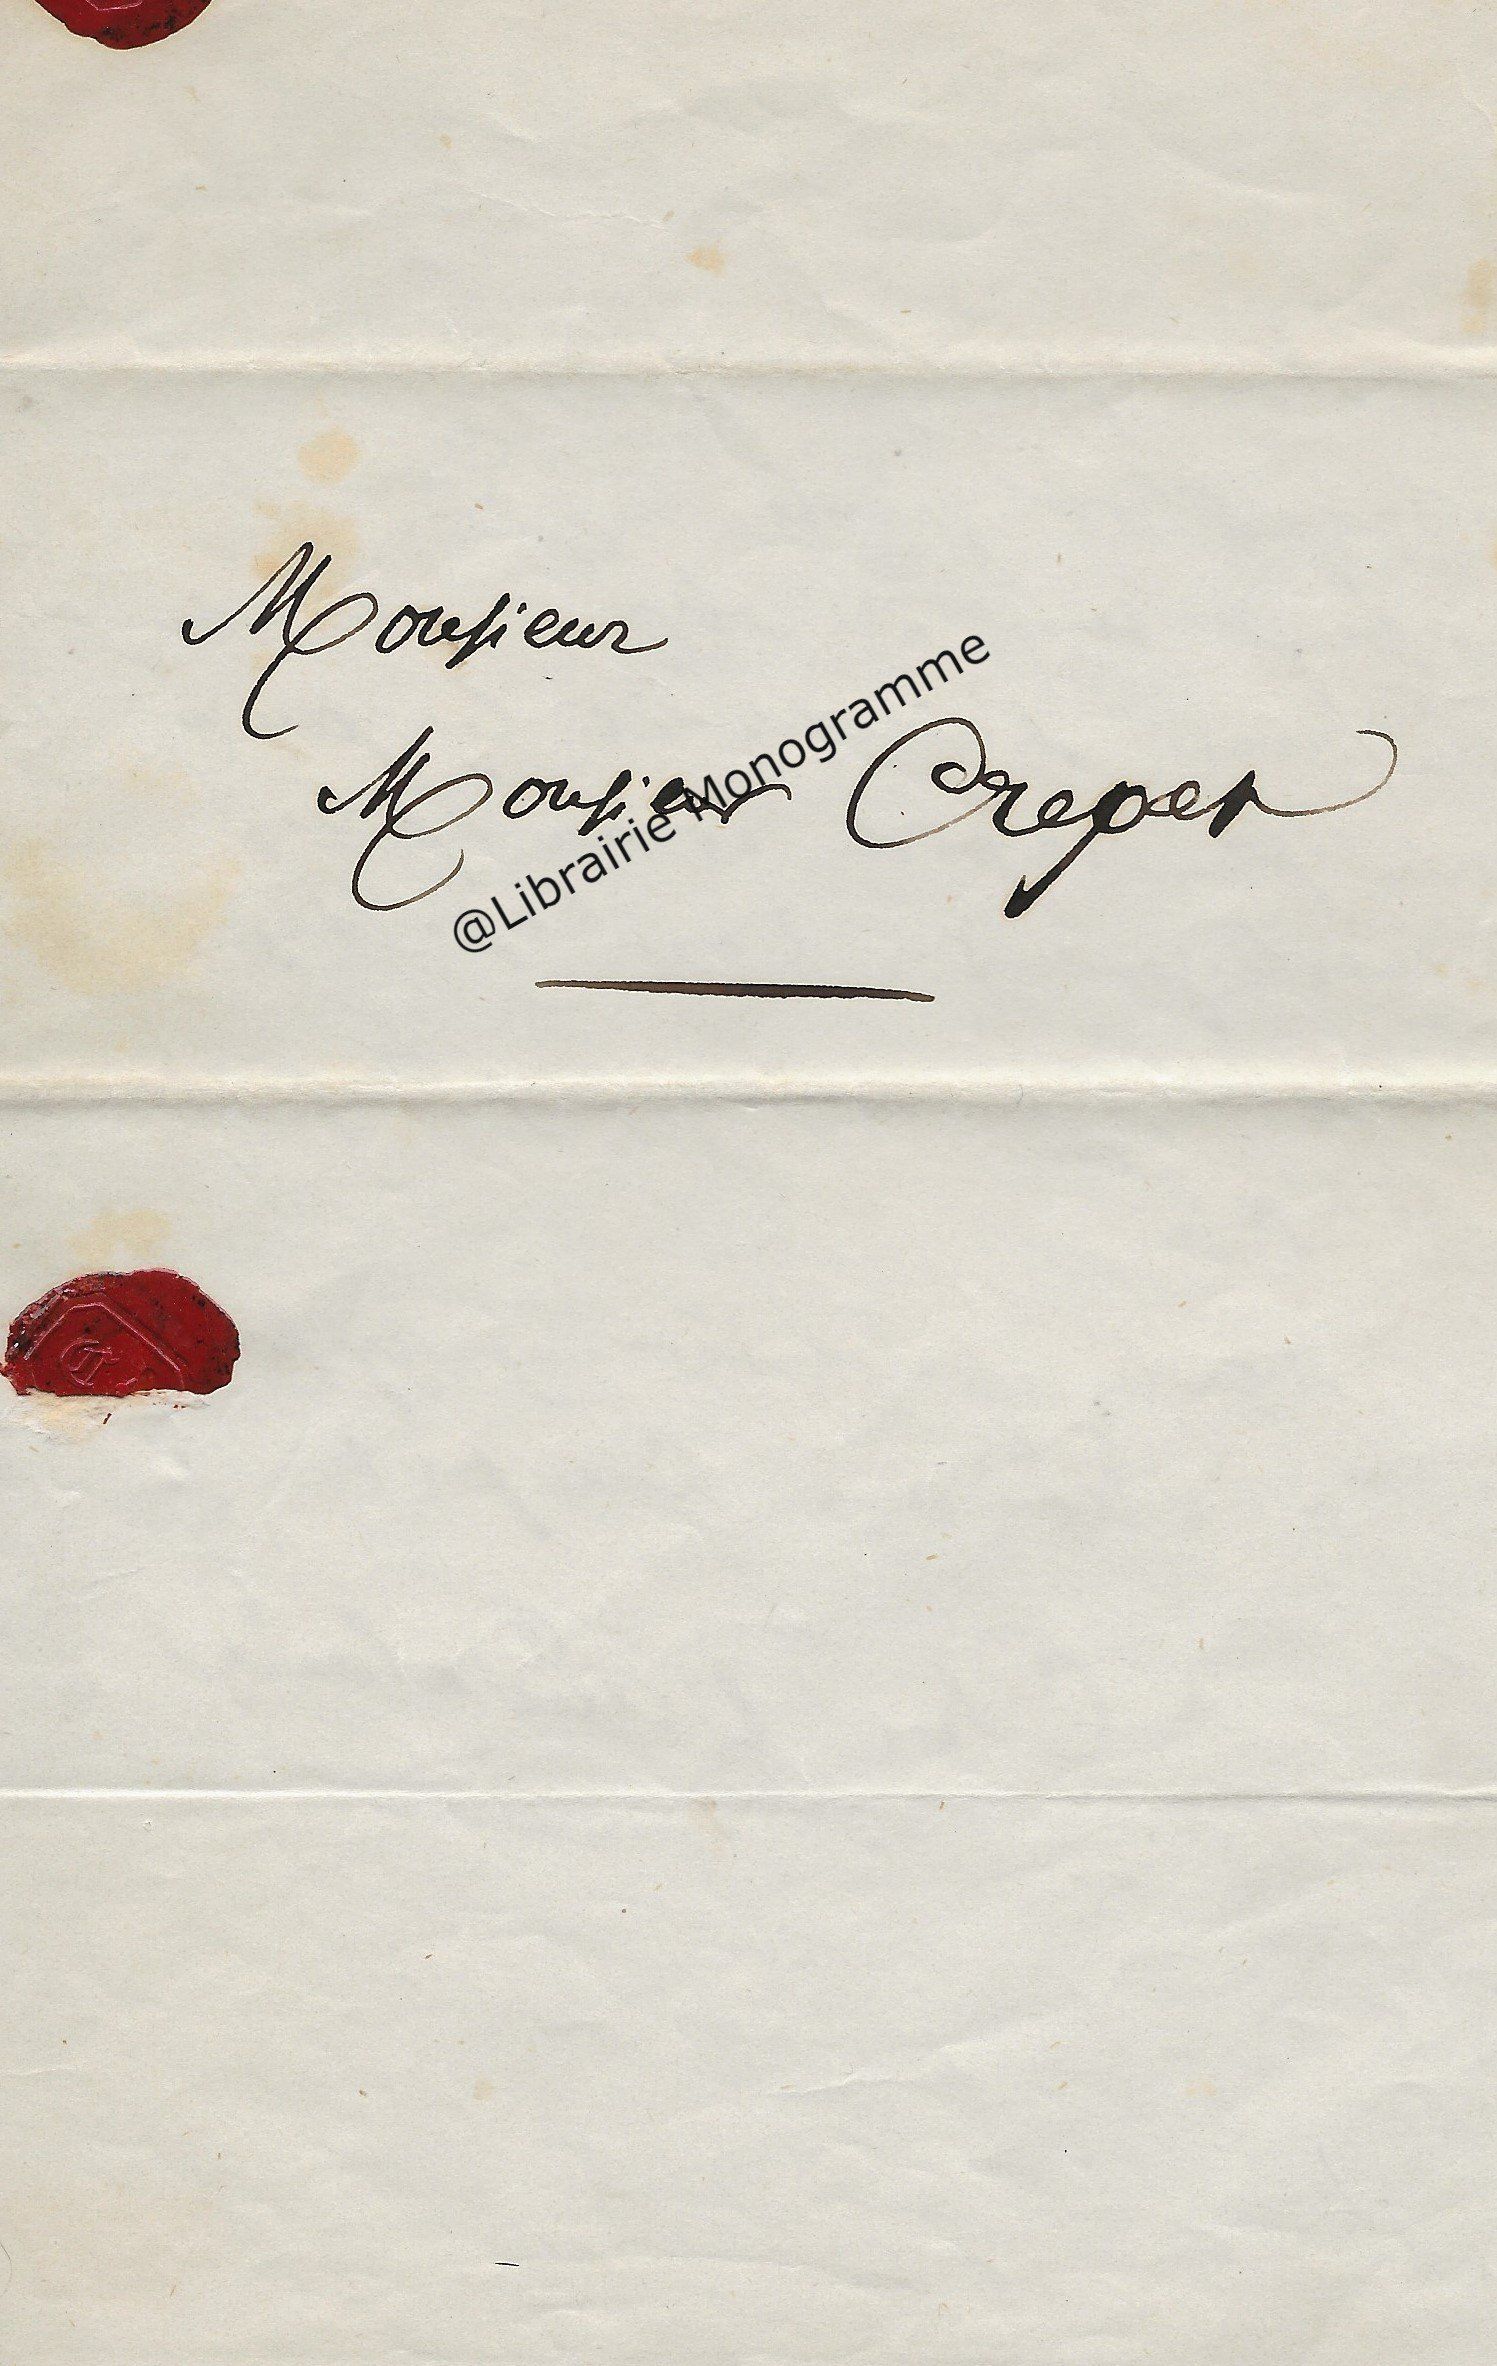 Monsieur
Monsieur Crepet
@Librairie Monogramme